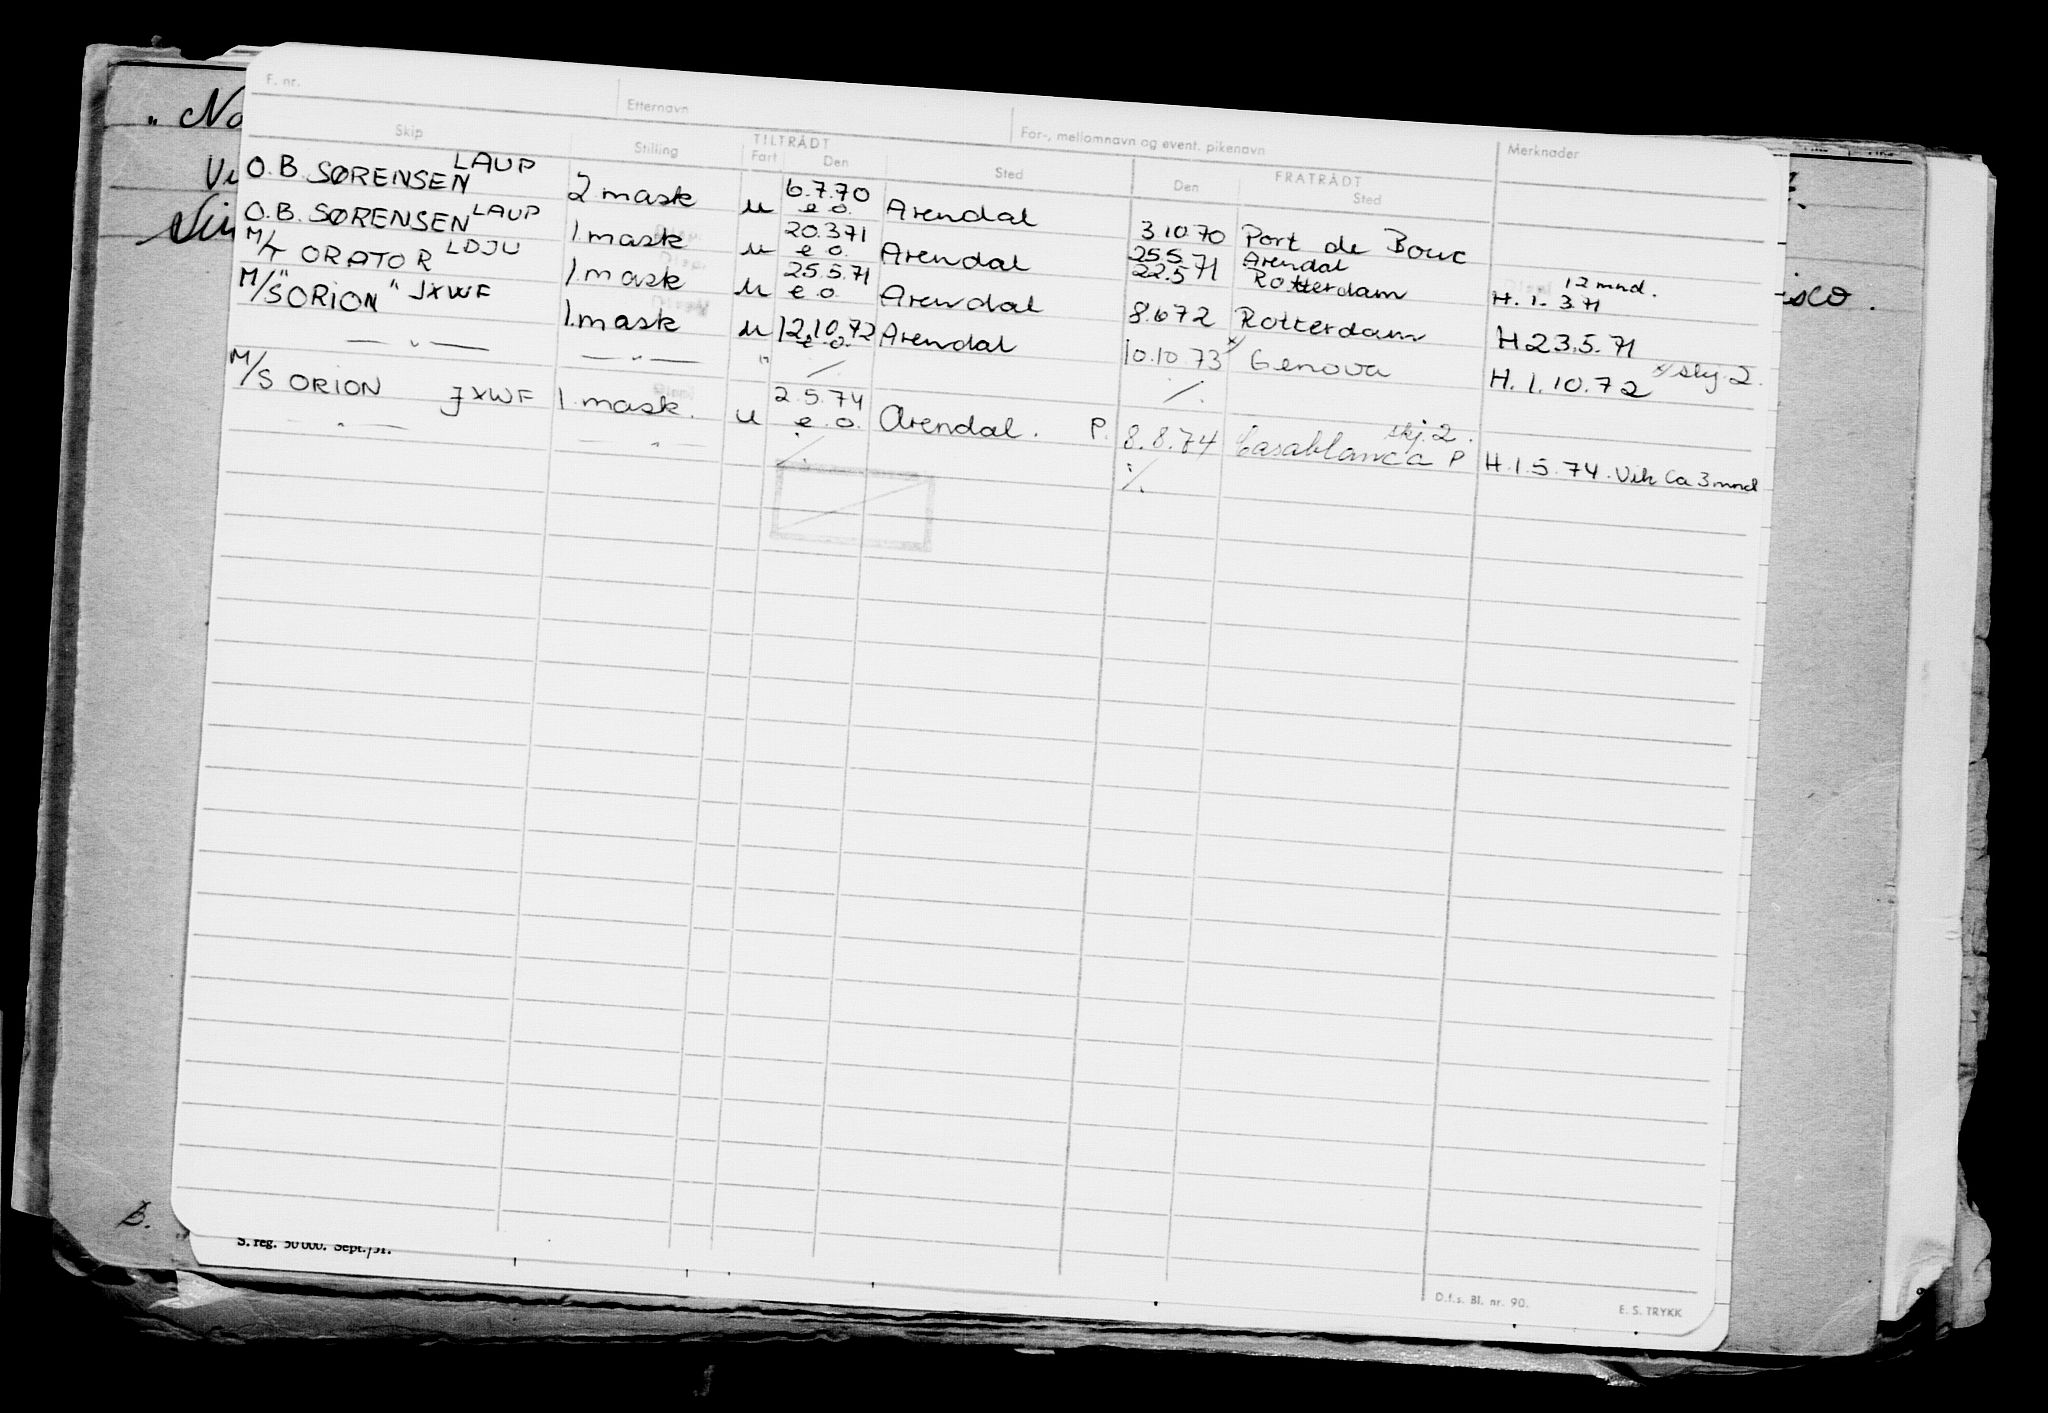 F. nr. Etternavn For-, mellomnavn og event. pikenavn Merknader
Skip Stilling TILTRÅDT Fart Den Sted FRATRÅDT Den Sted
O.B. SØRENSEN LAUP 2 mask u 6.7.70 e.o. Arendal 3.10.70 Port de Bouc
O.B. SØRENSEN LAUP 1 mask u 20.3.71 e.o. Arendal 25.5.71 Arendal 22.5 Rotterdam H. 1. 3.71 12 mnd.
M/T ORATOR LDJU 1 mask u 25.5.71 e.o. Arendal 8.6.72 Rotterdam H 23.5.71
M/S "ORION" JXWF 1. mask u 12.10.72 e.o. Arendal 10.10.73 x/ Genova H. 1.10.72 x/ skj. 2.
— " — — " — " / /.
M/S ORION JXWF 1. mask. u 2.5.74 e.o. Arendal. P. 8.8.74 Casablanca P skj. 2. H. 1.5.74. Vik Ca 3 mnd
— " — — " — ./. ./.
B.
S. reg. 50 000. Sept./51.
D.f.s. Bl. nr. 90. E. S. TRYKK